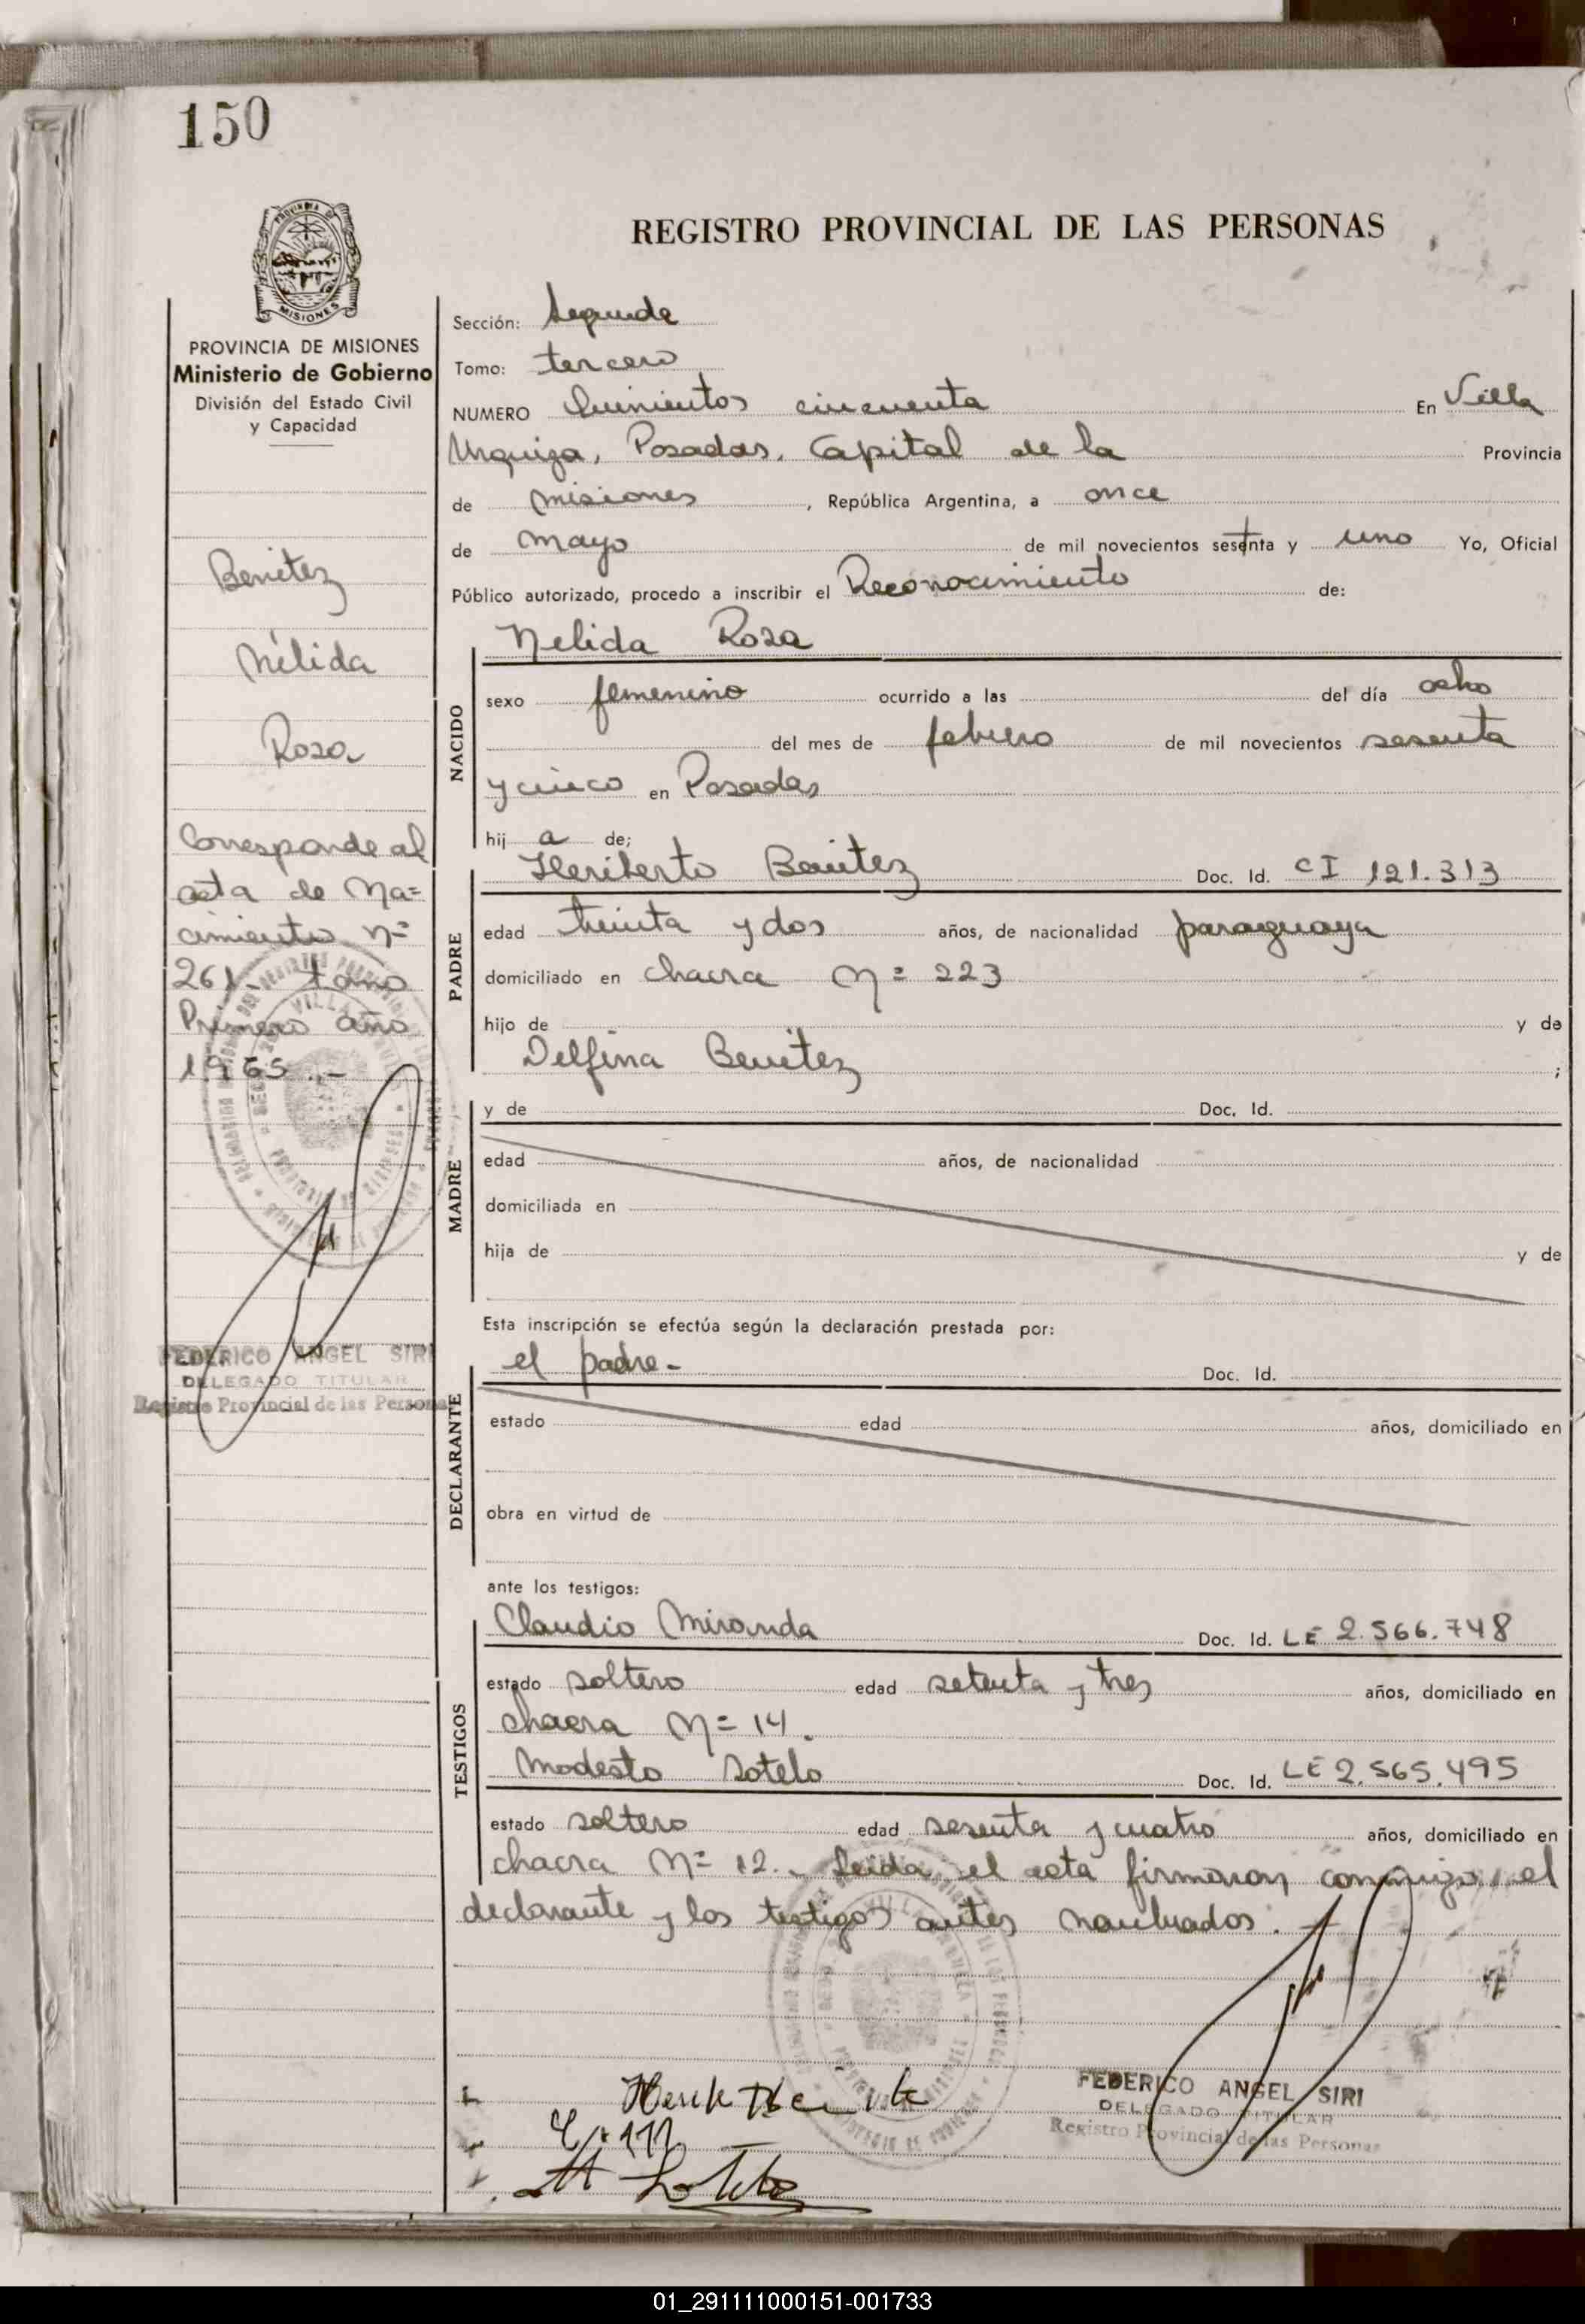 150
PROVINCIA DE MISIONES
PROVINCIA DE MISIONES
Ministerio de Gobierno
División del Estado Civil
y Capacidad
Benitez
Nélida
Rosa
Corresponde al
acta de Na=
cimiento Nº
261 - tomo
Primero año
1965.-
FEDERICO ANGEL SIRI
DELEGADO TITULAR
Registro Provincial de las Personas
REGISTRO PROVINCIAL DE LAS PERSONAS
Sección: Segunda
Tomo: tercero
NUMERO Quinientos cincuenta En Villa
Urquiza, Posadas, Capital de la Provincia
de Misiones, República Argentina, a once
de mayo de mil novecientos sesenta y uno Yo, Oficial
Público autorizado, procedo a inscribir el Reconocimiento de:
NACIDO
Nelida Rosa
sexo femenino ocurrido a las del día ocho
del mes de febrero de mil novecientos sesenta
y cinco en Posadas
hij a de;
PADRE
Heriberto Benitez Doc. Id. CI 121.313
edad treinta y dos años, de nacionalidad paraguaya
domiciliado en chacra Nº 223
hijo de y de
Delfina Benitez ;
MADRE
y de Doc. Id.
edad años, de nacionalidad
domiciliada en
hija de y de
Esta inscripción se efectúa según la declaración prestada por:
DECLARANTE
el padre - Doc. Id.
estado edad años, domiciliado en
obra en virtud de
ante los testigos:
TESTIGOS
Claudio Miranda Doc. Id. LE 2.566.748
estado soltero edad setenta y tres años, domiciliado en
chacra Nº 14.
Modesto Sotelo Doc. Id. LE 2.565.495
estado soltero edad sesenta y cuatro años, domiciliado en
chacra Nº 12.- Leida el acta firmaron conmigo, el
declarante y los testigos antes nombrados. -
FEDERICO ANGEL SIRI
DELEGADO TITULAR
Registro Provincial de las Personas
M Sotelo
01_291111000151-001733